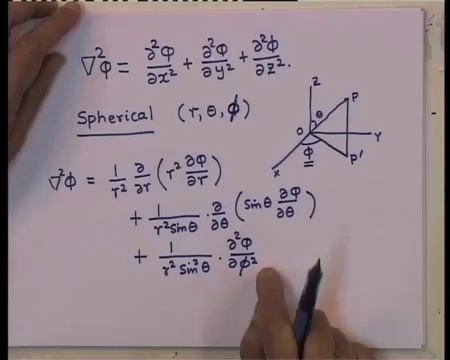 ∇²φ = ∂²φ/∂x² + ∂²φ/∂y² + ∂²φ/∂z².
Spherical (r, θ, ϕ)
Z
P
θ
O
Y
φ
P'
X
∇²φ = 1/r² ∂/∂r (r² ∂φ/∂r)
+ 1/r² sinθ · ∂/∂θ (sinθ ∂φ/∂θ)
+ 1/r² sin²θ · ∂²φ/∂ϕ²